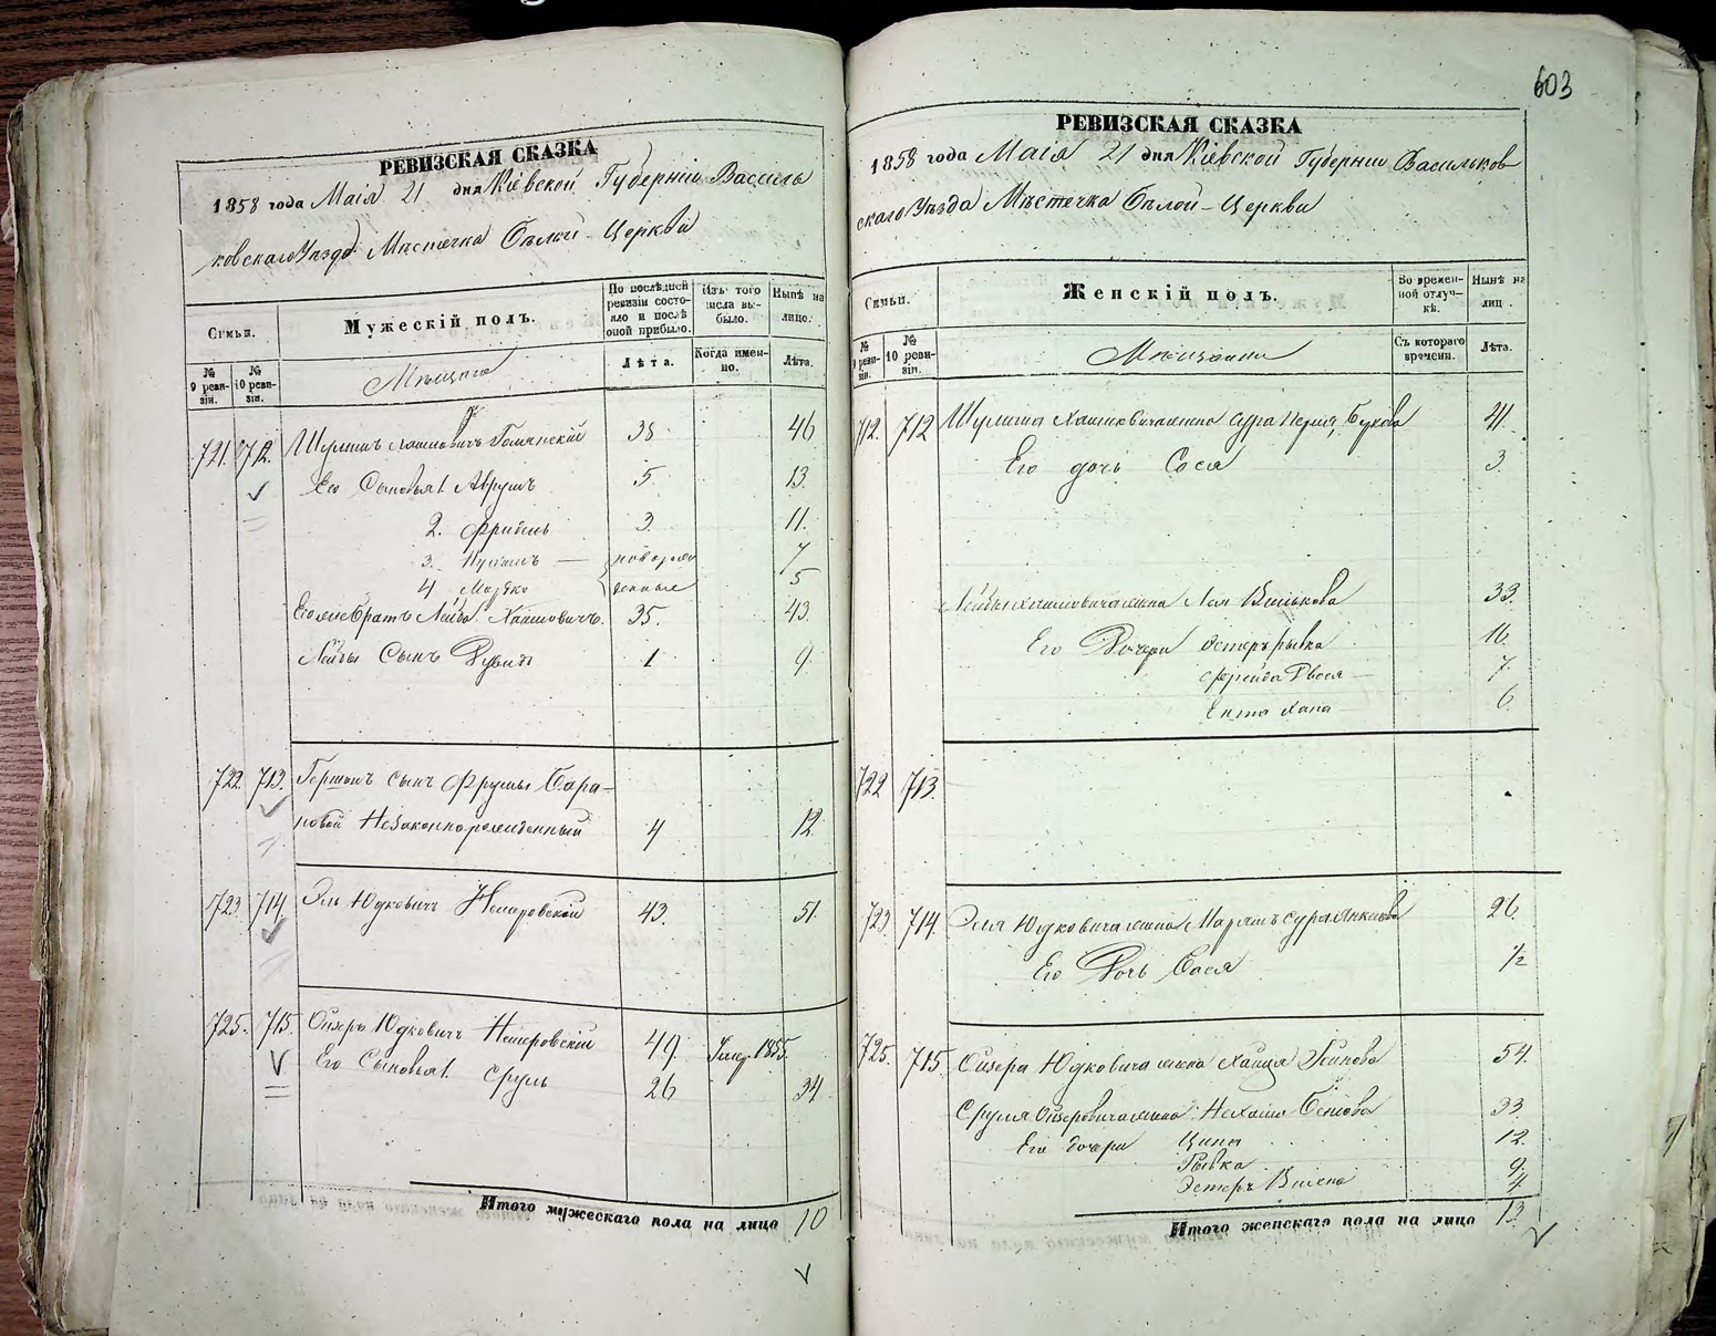 603
РЕВИЗСКАЯ СКАЗКА
1858 года Маія 21 дня Кіевской Губерніи Василь
ковскаго Уѣзда Мѣстечка Бѣлой-Церкви
Семьи.
Мужескій полъ.
По послѣдней ревизіи состояло и послѣ оной прибыло.
Изъ того числа выбыло.
Нынѣ на лицо.
№ 9 ревизіи.
№ 10 ревизіи.
Мѣщане
Лѣта.
Когда именно.
Лѣта.
721. 712. Шулимъ Хаимовичъ 38 46
Его Сыновья 1. Аврумъ 5 13.
2. Фроимъ 3. 11.
3. — новорож 7
4 Мошко денные 5
Его же братъ Лейба Хаимовичъ. 35. 43.
Лейбы Сынъ 1 9.
722. 713. Гершонъ сынъ Фрумы Бара-
новой Незаконнорожденный 4 12.
723. 714. Эль Юдковичъ Немеровскій 43. 51.
725. 715. Ойзеръ Юдковичъ Немеровскій 49. Умер. 1855.
Его Сыновья 1. Сруль 26 34
Итого мужескаго пола на лицо 10
РЕВИЗСКАЯ СКАЗКА
1858 года Маія 21 дня Кіевской Губерніи Васильков
скаго Уѣзда Мѣстечка Бѣлой-Церкви
Семьи.
Женскій полъ.
Во временной отлучкѣ.
Нынѣ на лиц
№ 9 ревизіи.
№ 10 ревизіи.
Мѣщанки
Съ котораго времени.
Лѣта.
712. 712 Шулима Хаимовича жена Сура Перля 41.
Его дочь Сося 3.
Лейбы Хаимовича жена Лея Волькова 33.
Его Дочери Эстеръ рывка 16.
Фрейда Двося — 7.
Ента Хана 6.
722 713.
723 714. Эля Юдковича жена Марьямъ сура Янкелева 26.
Его Дочь Сося 1/2
725. 715. Ойзера Юдковича жена Хайця 54.
Сруля Ойзеровича жена Нехама 33.
Его дочери Ципа 12.
Рывка 9.
Эстеръ 4
Итого женскаго пола на лицо 13.